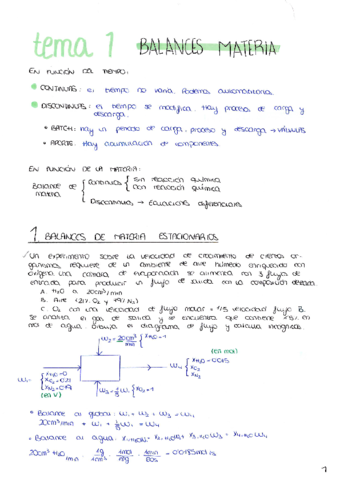 tema 1 BALANCES MATERIA
EN FUNCIÓN DEL TIEMPO:
CONTINUOS: el tiempo no varía. Podemos automatizarlos.
DISCONTINUOS: el tiempo se modifica. Hay proceso de carga y
descarga.
* BATCH: hay un periodo de carga, proceso y descarga → válvulas
* APORTE: Hay acumulación de componentes.
EN FUNCIÓN DE LA MATERIA:
Balance de materia
Continuos
sin reacción química
con reacción química
Discontinuos → Ecuaciones diferenciales
1. BALANCES DE MATERIA ESTACIONARIOS
Un experimento sobre la velocidad de crecimiento de ciertos or-
ganismos, requiere de un ambiente de aire húmedo enriquecido con
oxígeno. Una cámara de evaporación se alimenta con 3 flujos de
entrada para producir un flujo de salida con la composición deseada.
A. H₂O a 20cm³/min
B. Aire (21% O₂ y 79% N₂)
C. O₂ con una velocidad de flujo molar = 1/5 velocidad flujo B.
Se analiza el gas de salida y se encuentra que contiene 1,5% en
mol de agua. Dibuja el diagrama de flujo y calcula incógnitas.
W₂ = 20cm³/min
(en mol)
W₄
XH₂O = 0,015
XO₂
XN₂
W₁
XH₂O = 0
XO₂ = 0,21
XN₂ = 0,79
(en V)
W₃ = 1/5 W₁
XO₂ = 1
* Balance al global: W₁ + W₂ + W₃ = W₄
20cm³/min + W₁ + 1/5 W₁ = W₄
* Balance al agua.
1